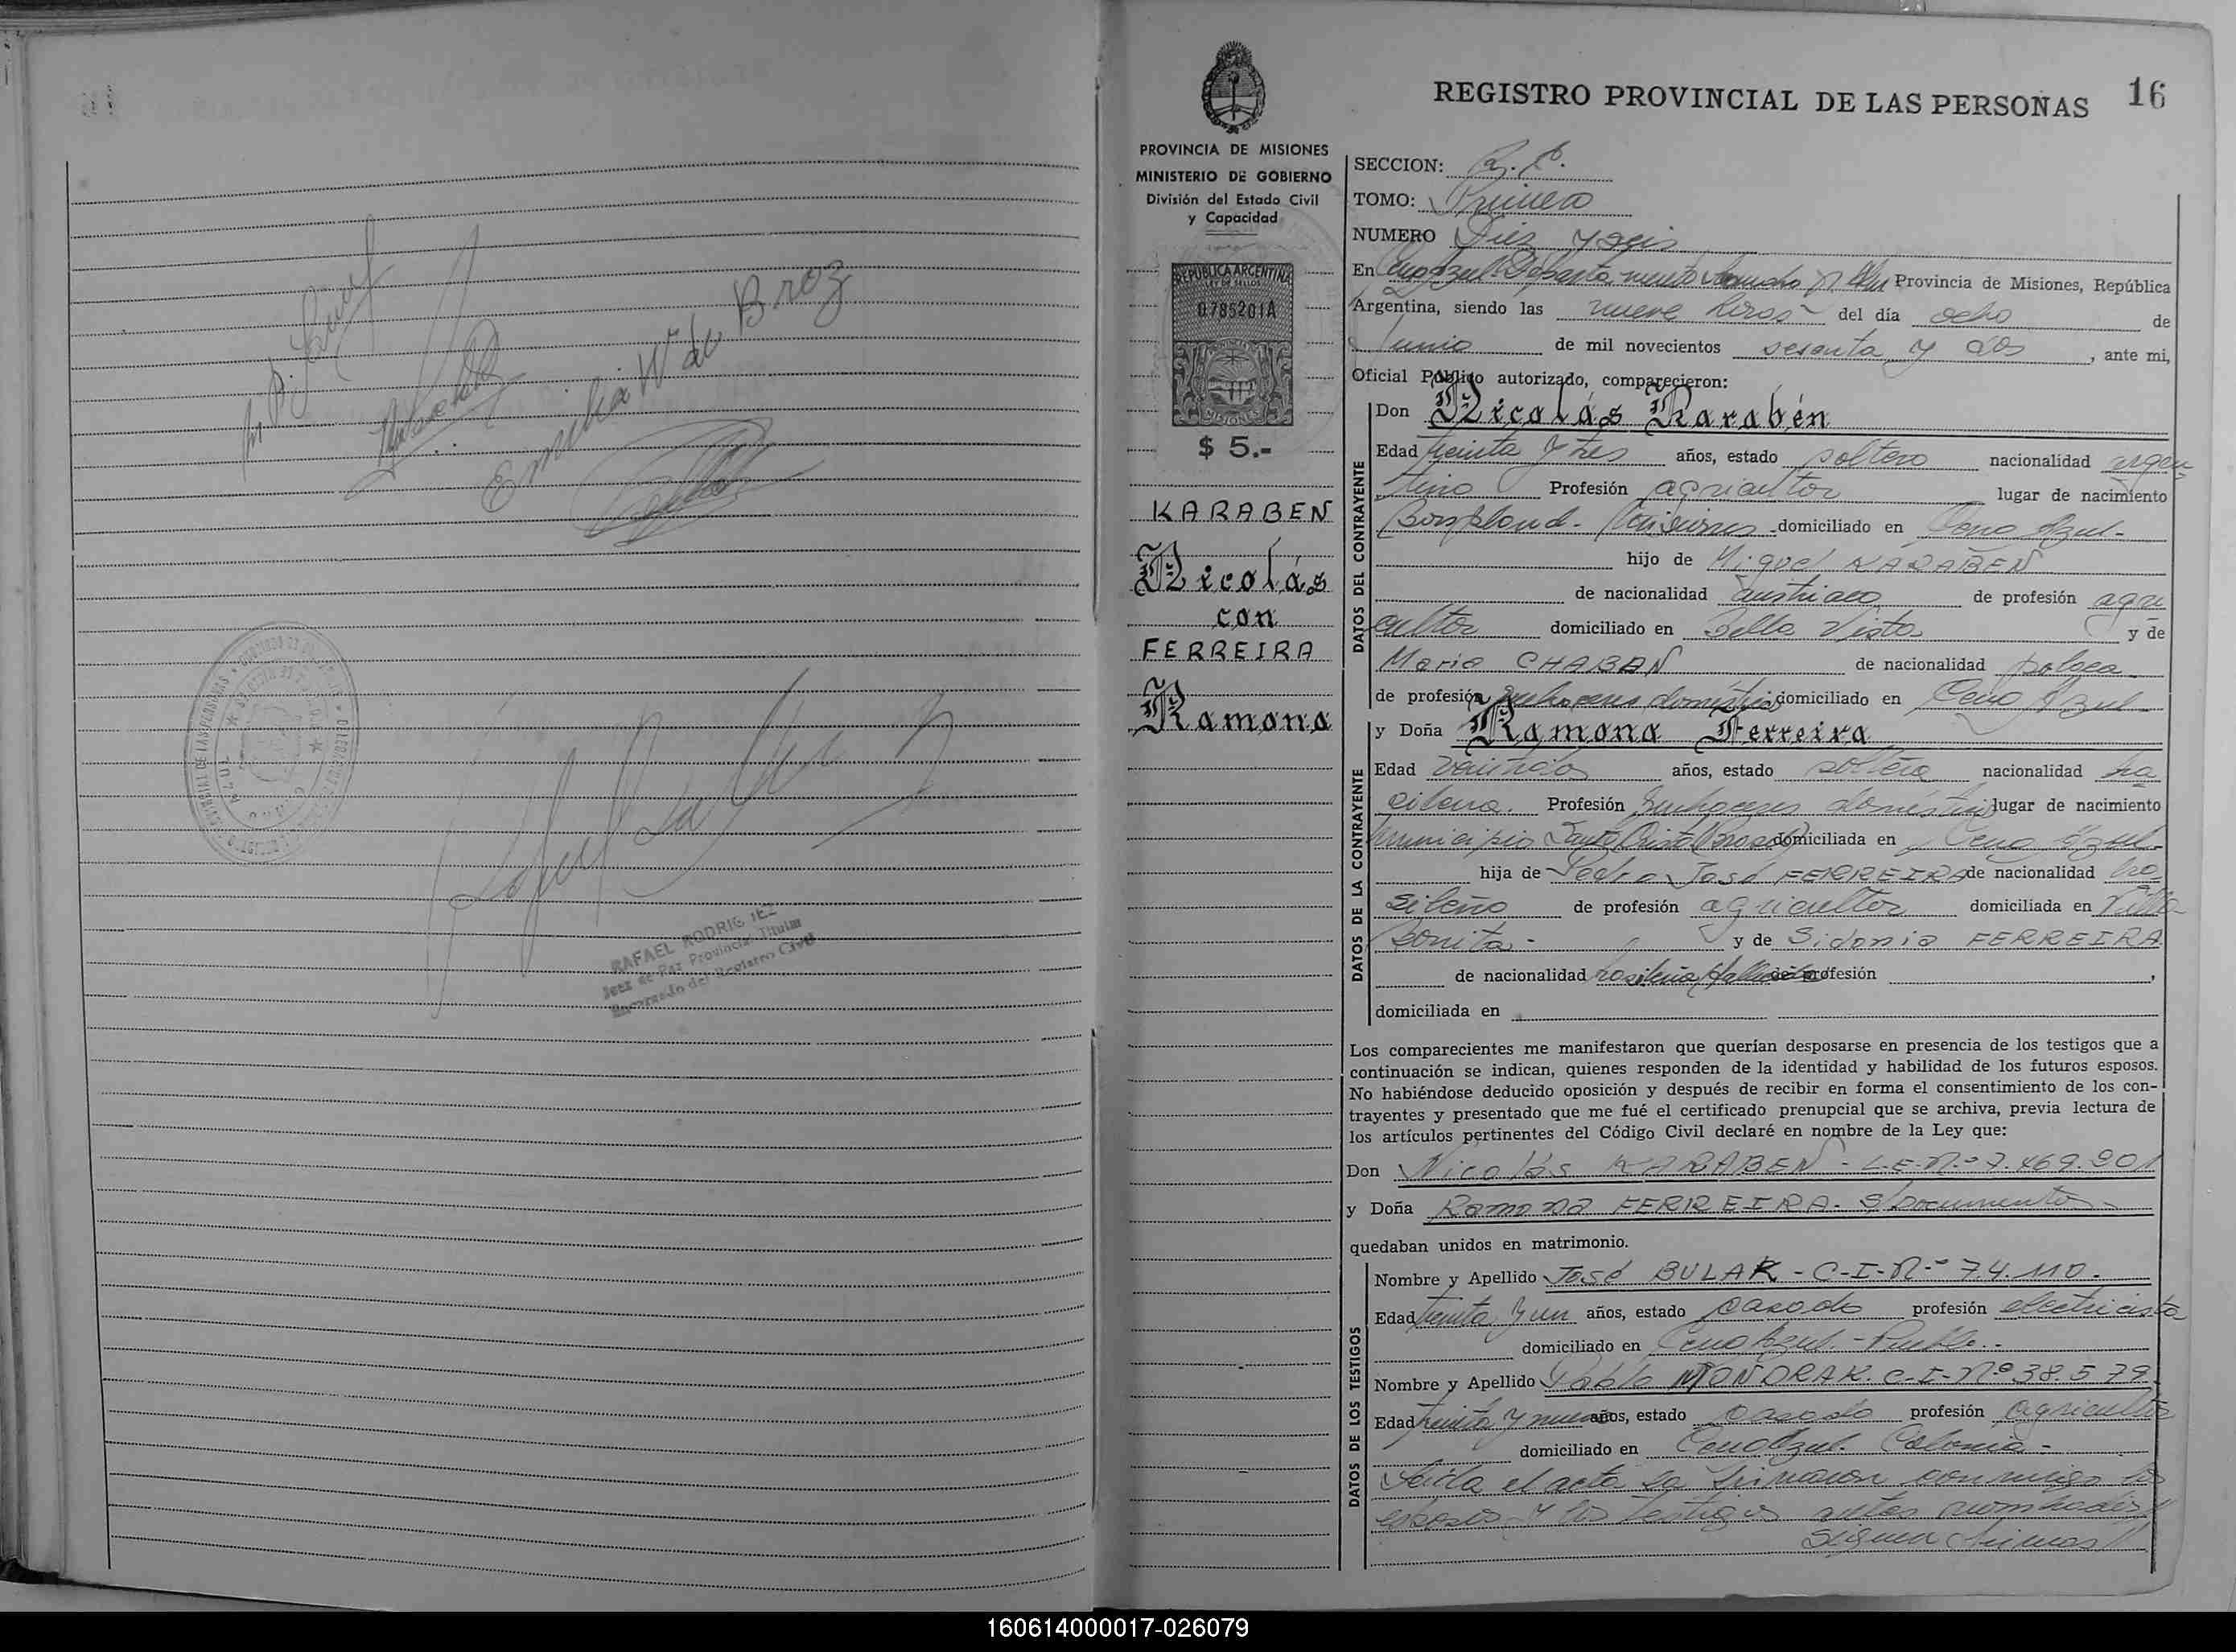 Emilia W de Broz
RAFAEL RODRIGUEZ
Juez de Paz Provincial Titular
Encargado del Registro Civil
16
REGISTRO PROVINCIAL DE LAS PERSONAS
PROVINCIA DE MISIONES
MINISTERIO DE GOBIERNO
División del Estado Civil
y Capacidad
REPUBLICA ARGENTINA
LEY DE SELLOS
0785201A
MISIONES
$ 5.-
KARABEN
Nicolás
con
FERREIRA
Ramona
SECCION: R.C.
TOMO: Primero
NUMERO Diez y seis
En Cerro Azul Departamento Leandro N. Alem Provincia de Misiones, República
Argentina, siendo las nueve horas del día ocho de
Junio de mil novecientos sesenta y dos, ante mi,
Oficial Público autorizado, comparecieron:
DATOS DEL CONTRAYENTE
Don Nicolás Karabén
Edad treinta y tres años, estado soltero nacionalidad argen
tino Profesión agricultor lugar de nacimiento
Bonpland - Misiones - domiciliado en Cerro Azul -
hijo de Miguel KARABEN
de nacionalidad austriaco de profesión agri
cultor domiciliado en Bella Vista y de
Maria CHABAN de nacionalidad polaca
de profesión quehaceres domésticos domiciliado en Cerro Azul -
DATOS DE LA CONTRAYENTE
y Doña Ramona Ferreira
Edad veintidos años, estado soltera nacionalidad bra
sileña. Profesión Quehaceres domésticos lugar de nacimiento
municipio Santo Cristo (Brasil) domiciliada en Cerro Azul -
hija de Pedro José FERREIRA de nacionalidad bra
sileño de profesión agricultor domiciliada en Villa
Bonita - y de Sidonia FERREIRA
de nacionalidad brasileña (fallecida) de profesión ,
domiciliada en
Los comparecientes me manifestaron que querían desposarse en presencia de los testigos que a
continuación se indican, quienes responden de la identidad y habilidad de los futuros esposos.
No habiéndose deducido oposición y después de recibir en forma el consentimiento de los con-
trayentes y presentado que me fué el certificado prenupcial que se archiva, previa lectura de
los artículos pertinentes del Código Civil declaré en nombre de la Ley que:
Don Nicolás KARABEN - L-E-N.º 7.469.901
y Doña Ramona FERREIRA - s/Documento -
quedaban unidos en matrimonio.
DATOS DE LOS TESTIGOS
Nombre y Apellido José BULAK - C-I-Nº 74.110.
Edad treinta y un años, estado casado profesión electricista
domiciliado en Cerro Azul - Pueblo. -
Nombre y Apellido Pablo MONDRAK. C-I-Nº 38.579
Edad treinta y nueve años, estado casado profesión agricultor
domiciliado en Cerro Azul. Colonia -
Leída el acta la firmaron conmigo los
esposos y los testigos antes nombrados
Siguen firmas//
160614000017-026079